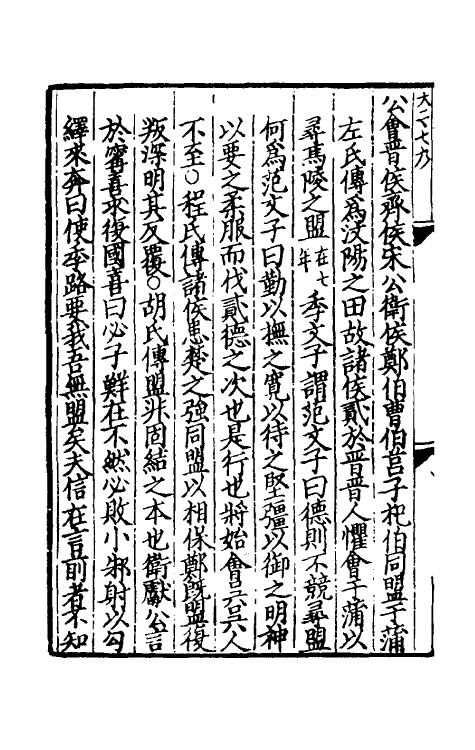 公會晉侯齊侯宋公衛侯鄭伯曹伯莒子杞伯同盟于蒲
左氏傳為汶陽之田故諸侯貳於晉晉人懼會于蒲以
尋馬陵之盟在七年季文子謂范文子曰德則不競尋盟
何為范文子曰勤以撫之寬以待之堅彊以御之明神
以要之柔服而伐貳德之次也是行也將始會吳吳人
不至○程氏傳諸侯患楚之強同盟以相保鄭旣盟復
叛深明其反覆○胡氏傳盟非固結之本也衛獻公言
於甯喜求復國喜曰必子鮮在不然必敗小邾射以句
繹來奔曰使季路要我吾無盟矣夫信在言前者不知